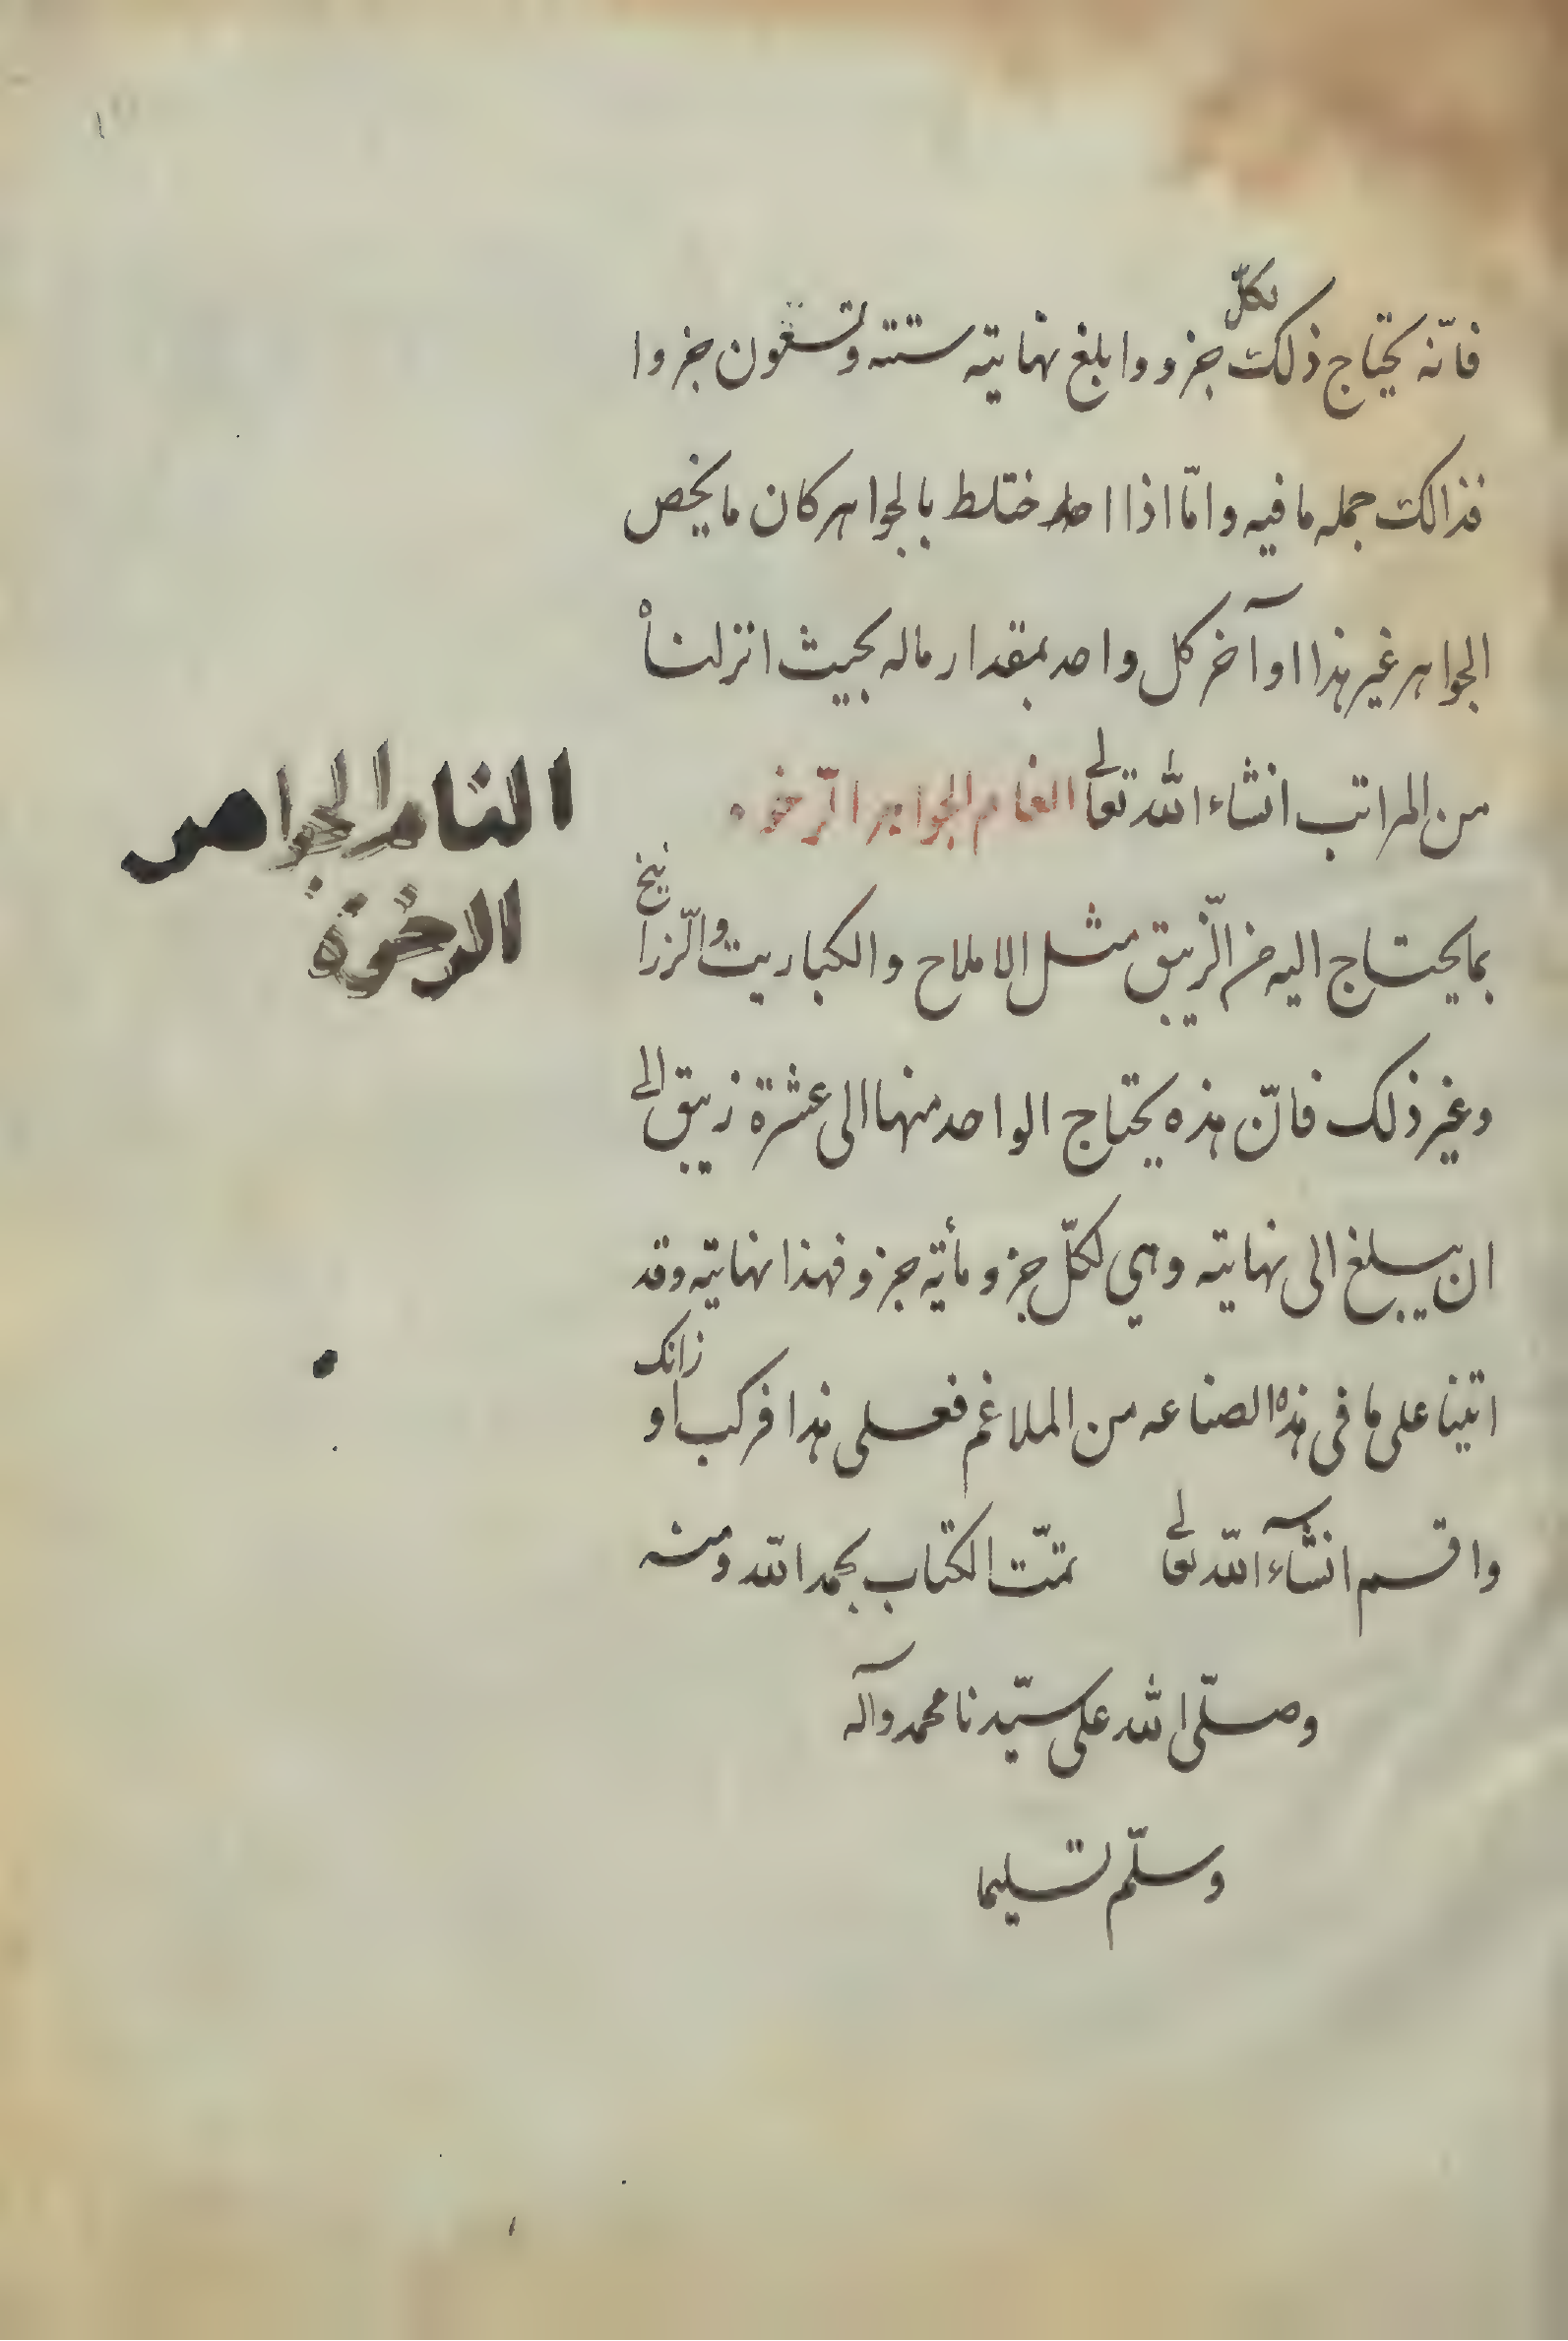 فانّه يحتاج ذلك لكلّ جزو وابلغ نهايته ستته وتسعون جزوا
فذالك جمله ما فيه وامّا اذا اختلط بالجواهر كان ما يخص
الجواهر غير هذا اوآخر كل واحد بمقدار ماله بحيث انزلناه
من المراتب انشاء الله تعالى الغام الجواهر الرّخوه
بما يحتاج اليه من الزّيبق مثل الاملاح والكباريت والزّرانيخ
وغير ذلك فانّ هذه يحتاج الواحد منها الى عشرة زيبق الى
ان يبلغ الى نهايته وهي لكلّ جزو مأية جزو فهذا نهايته وقد
اتينا على ما فى هذه الصناعه من الملاغم فعلى هذا فركب اوزانك
واقسم انشآء اللّه تعالى تمّت الكتاب بحمد اللّه ومنه
وصلّى اللّه على سيّدنا محمد وآله
وسلّم تسليما
الغام الجواهر
الرخوة